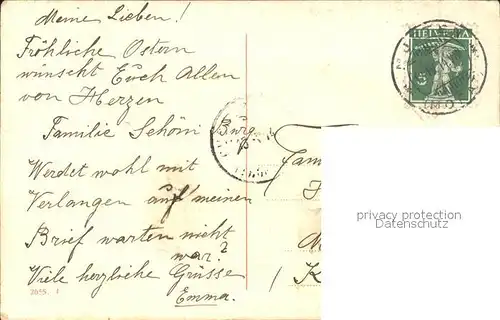 Meine Lieben!
Fröhliche Ostern
wünscht Euch Allen
von Herzen
Familie Schöni Burg
Werdet wohl mit
Verlangen auf meinen
Brief warten nicht
war?
Viele herzliche Grüsse
Emma.
2055. 1
HELVETIA
5
Fam
privacy protection
Datenschutz
K